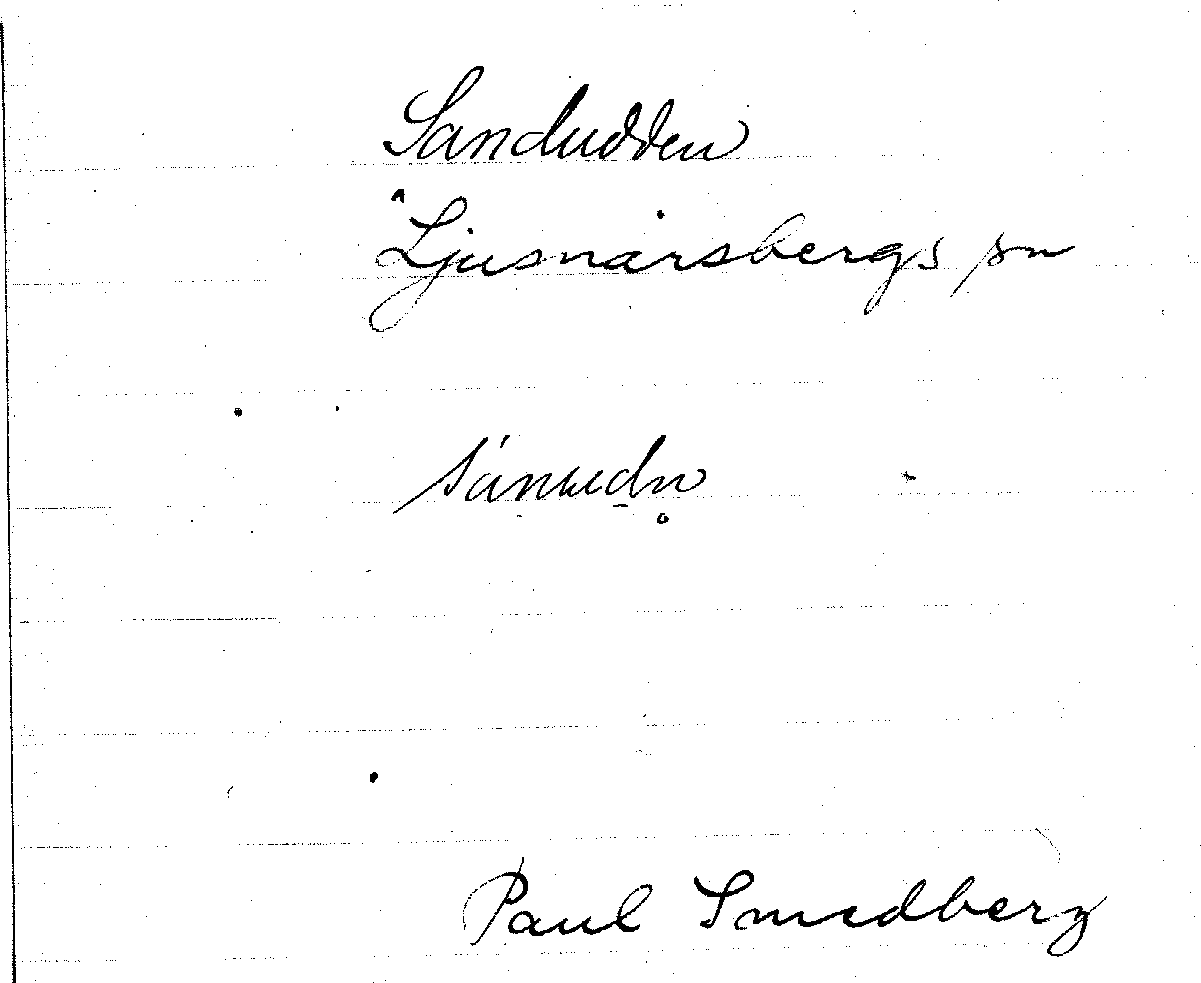 Sandudden
Ljusnarsbergs sn
Paul Smedberg